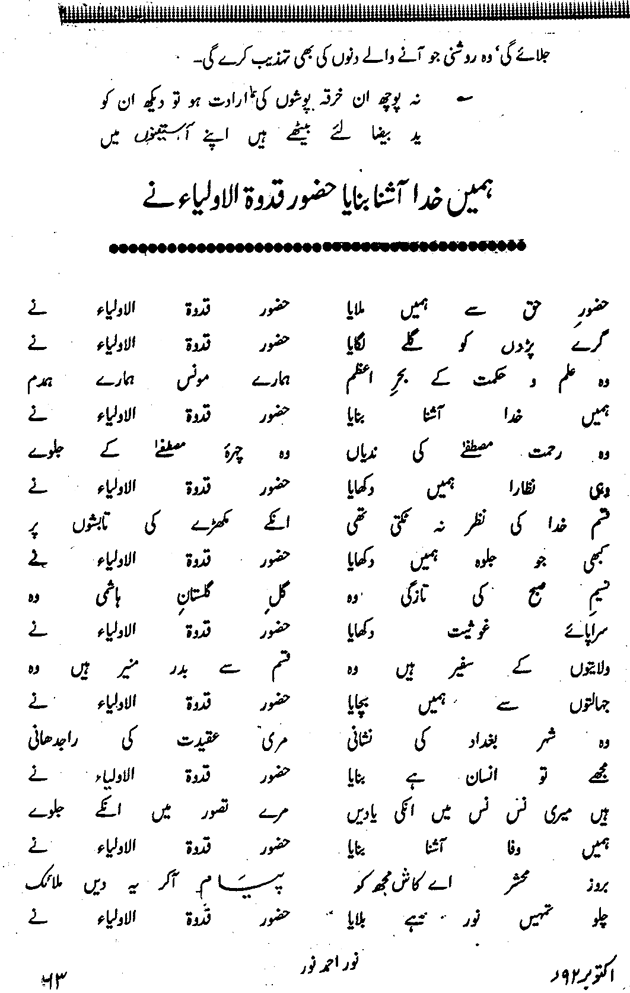 جلائے گی، وہ روشنی جو آنے والے دنوں کی بھی تہذیب کرے گی۔
نہ پوچھ ان خرقہ پوشوں کی ارادت ہو تو دیکھ ان کو
ید بیضا لئے بیٹھے ہیں اپنے آستینوں میں
ہمیں خدا آشنا بنایا حضور قدوۃ الاولیاء نے
حضورِ حق سے ہمیں ملایا حضور قدوۃ الاولیاء نے
گرے پڑوں کو گلے لگایا حضور قدوۃ الاولیاء نے
وہ علم و حکمت کے بحرِ اعظم ہمارے مونس ہمارے ہمدم
ہمیں خدا آشنا بنایا حضور قدوۃ الاولیاء نے
وہ رحمت مصطفےٰ کی ندیاں وہ چہرۂ مصطفےٰ کے جلوے
وہی نظارا ہمیں دکھایا حضور قدوۃ الاولیاء نے
قسم خدا کی نظر نہ ٹکتی تھی انکے مکھڑے کی تابشوں پر
کبھی جو جلوہ ہمیں دکھایا حضور قدوۃ الاولیاء نے
نسیمِ صبح کی تازگی وہ گلِ گلستانِ ہاشمی وہ
سراپائے غوثیت دکھایا حضور قدوۃ الاولیاء نے
ولایتوں کے سفیر ہیں وہ قسم سے بدر منیر ہیں وہ
جہالتوں سے ہمیں بچایا حضور قدوۃ الاولیاء نے
وہ شہر بغداد کی نشانی مری عقیدت کی راجدھانی
مجھے تو انسان ہے بنایا حضور قدوۃ الاولیاء نے
ہیں میری نس نس میں انکی یادیں مرے تصور میں انکے جلوے
ہمیں وفا آشنا بنایا حضور قدوۃ الاولیاء نے
بروز محشر اے کاش مجھ کو پیام آکر یہ دیں ملائک
چلو تمہیں نور ہے بلایا حضور قدوۃ الاولیاء نے
نور احمد نور
اکتوبر ۹۲ء
۶۳